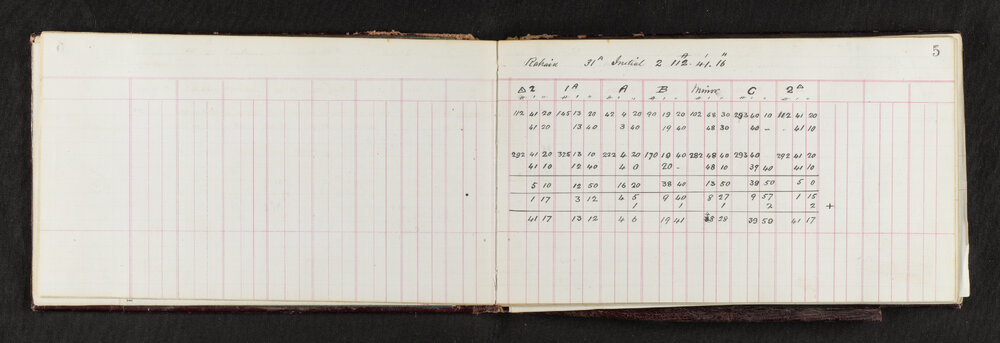 5
31 Initial 2 112° 41' 16"
Δ2 1A A B C 2Δ
° ' " ° ' " ° ' " ° ' " ° ' " ° ' " ° ' "
112 41 20 145 13 20 42 4 20 90 19 20 102 48 30 293 40 10 112 41 20
41 20 13 40 3 40 19 40 48 30 40 - - 41 10
292 41 20 325 13 10 222 4 20 170 19 40 282 48 40 293 40 292 41 20
41 10 12 40 4 0 20 - 48 10 39 40 41 10
5 10 12 50 16 20 38 40 13 50 38 50 5 0
1 17 3 12 4 5 9 40 8 27 9 57 1 15
1 1 1 2 2 +
41 17 13 12 4 6 19 41 48 28 39 59 41 17